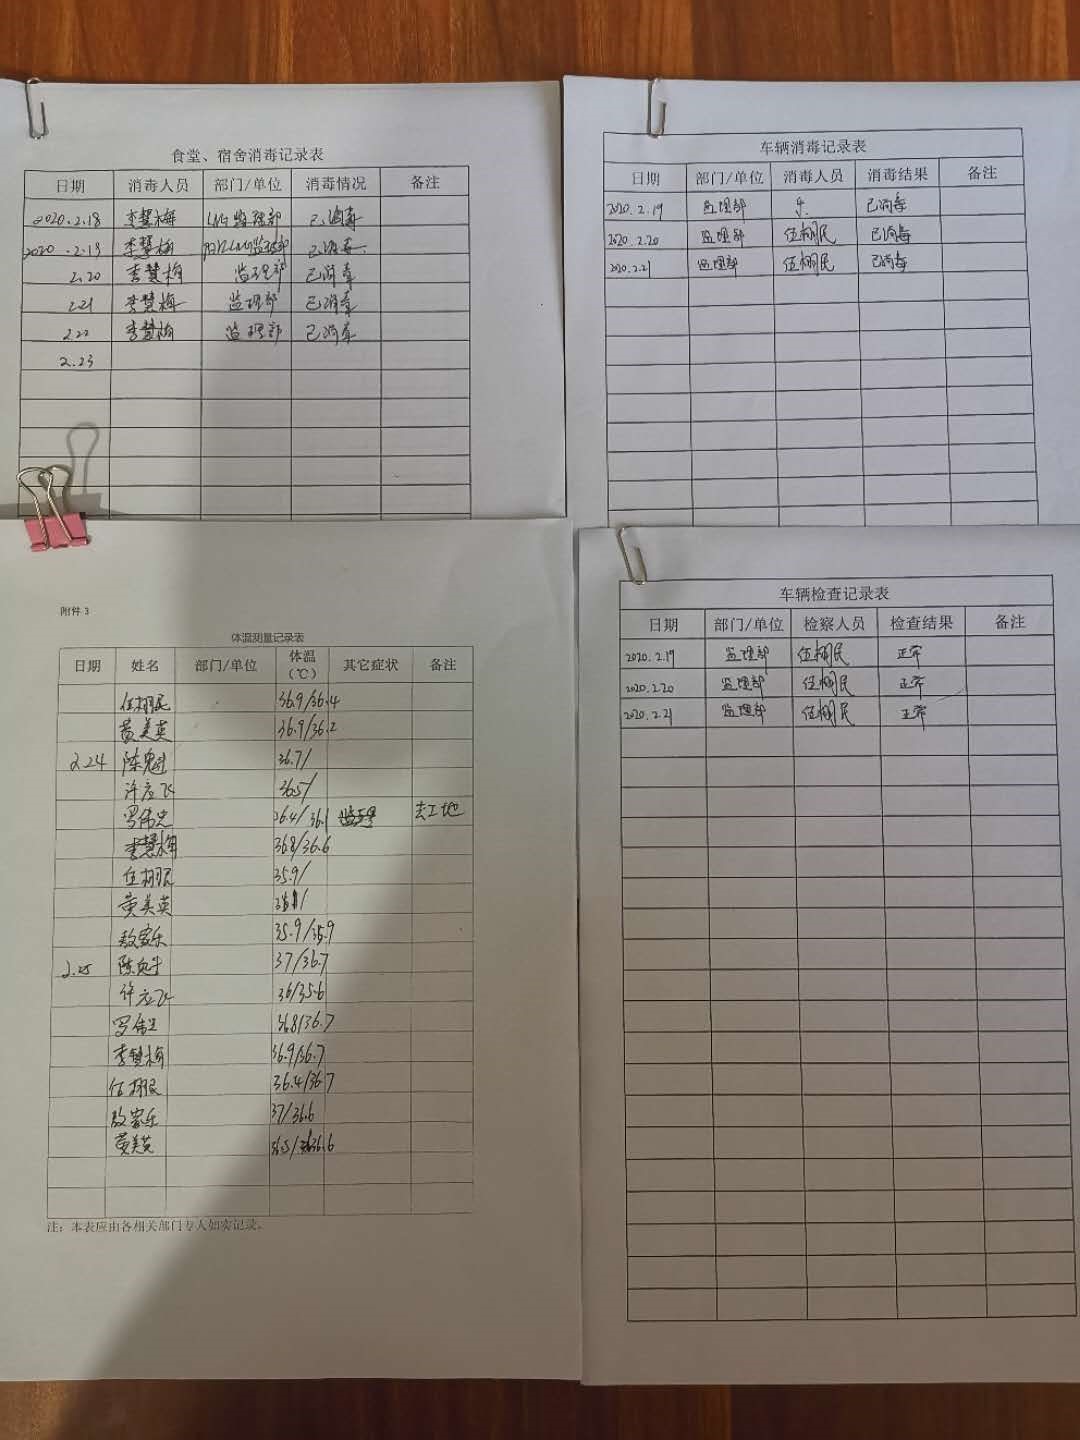 食堂、宿舍消毒记录表
日期 消毒人员 部门/单位 消毒情况 备注
2020.2.18 李慧梅 LNG监理部 已消毒
2020.2.19 李慧梅 LNG监理部 已消毒
2.20 李慧梅 监理部 已消毒
2.21 李慧梅 监理部 已消毒
2.22 李慧梅 监理部 已消毒
2.23
车辆消毒记录表
日期 部门/单位 消毒人员 消毒结果 备注
2020.2.19 监理部 已消毒
2020.2.20 监理部 伍栩民 已消毒
2020.2.21 监理部 伍栩民 已消毒
附件 3
体温测量记录表
日期 姓名 部门/单位 体温 其它症状 备注
(℃)
伍栩民 36.9/36.4
黄美英 36.9/36.2
2.24 陈魁 36.7/
许应飞 36.5/
罗伟忠 36.4/36.1 去工地
李慧梅 36.8/36.6
伍栩民 35.9/
黄美英
敖家乐 35.9/35.9
2.25 陈魁 37/36.7
许应飞 36/35.6
罗伟忠 36.8/36.7
李慧梅 36.9/36.7
伍栩民 36.4/36.7
敖家乐 37/36.6
黄美英 36.5/36.6
注：本表应由各相关部门专人如实记录。
车辆检查记录表
日期 部门/单位 检察人员 检查结果 备注
2020.2.19 监理部 伍栩民 正常
2020.2.20 监理部 伍栩民 正常
2020.2.21 监理部 伍栩民 正常